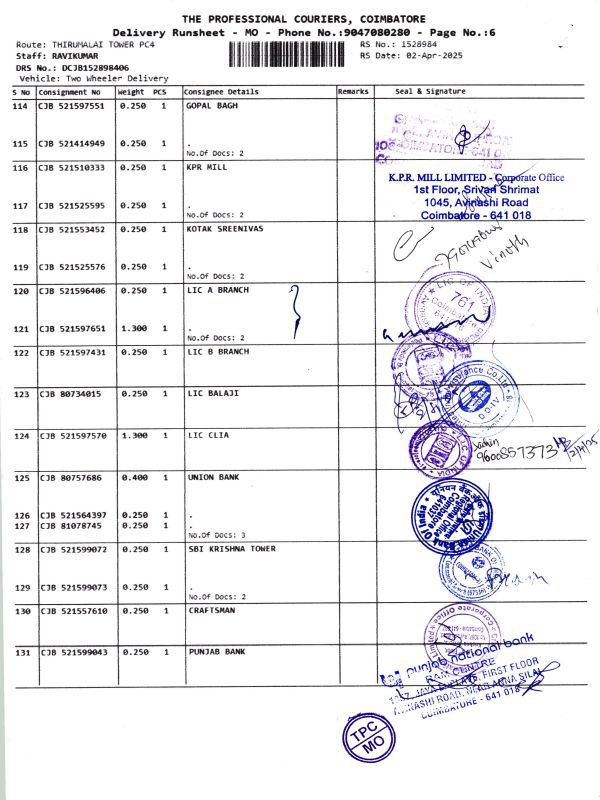 THE PROFESSIONAL COURIERS, COIMBATORE
Delivery Runsheet - MO - Phone No.:9047080280 - Page No.:6
Route: THIRUMALAI TOWER PC4 RS No.: 1528984
Staff: RAVIKUMAR RS Date: 02-Apr-2025
DRS No.: DCJB152898406
Vehicle: Two Wheeler Delivery
S No Consignment No Weight PCS Consignee Details Remarks Seal & Signature
114 CJB 521597551 0.250 1 GOPAL BAGH
115 CJB 521414949 0.250 1 .
No.Of Docs: 2
116 CJB 521510333 0.250 1 KPR MILL
K.P.R. MILL LIMITED - Corporate Office
1st Floor, Srivari Shrimat
1045, Avinashi Road
Coimbatore - 641 018
117 CJB 521525595 0.250 1 .
No.Of Docs: 2
118 CJB 521553452 0.250 1 KOTAK SREENIVAS
Vinoth
119 CJB 521525576 0.250 1 .
No.Of Docs: 2
120 CJB 521596406 0.250 1 LIC A BRANCH
LIC OF INDIA
761
121 CJB 521597651 1.300 1 .
No.Of Docs: 2
122 CJB 521597431 0.250 1 LIC B BRANCH
123 CJB 80734015 0.250 1 LIC BALAJI
124 CJB 521597570 1.300 1 LIC CLIA
LIC OF INDIA
9600857373
2/4/25
125 CJB 80757686 0.400 1 UNION BANK
Union Bank Of India
Regional Office
Coimbatore
641037
126 CJB 521564397 0.250 1 .
127 CJB 81078745 0.250 1 .
No.Of Docs: 3
128 CJB 521599072 0.250 1 SBI KRISHNA TOWER
129 CJB 521599073 0.250 1 .
No.Of Docs: 2
130 CJB 521557610 0.250 1 CRAFTSMAN
Corporate Office
131 CJB 521599043 0.250 1 PUNJAB BANK
punjab national bank
RAM CENTRE
FIRST FLOOR
AVINASHI ROAD, NEAR ANNA SILAI
COIMBATORE - 641 018
TPC
MO